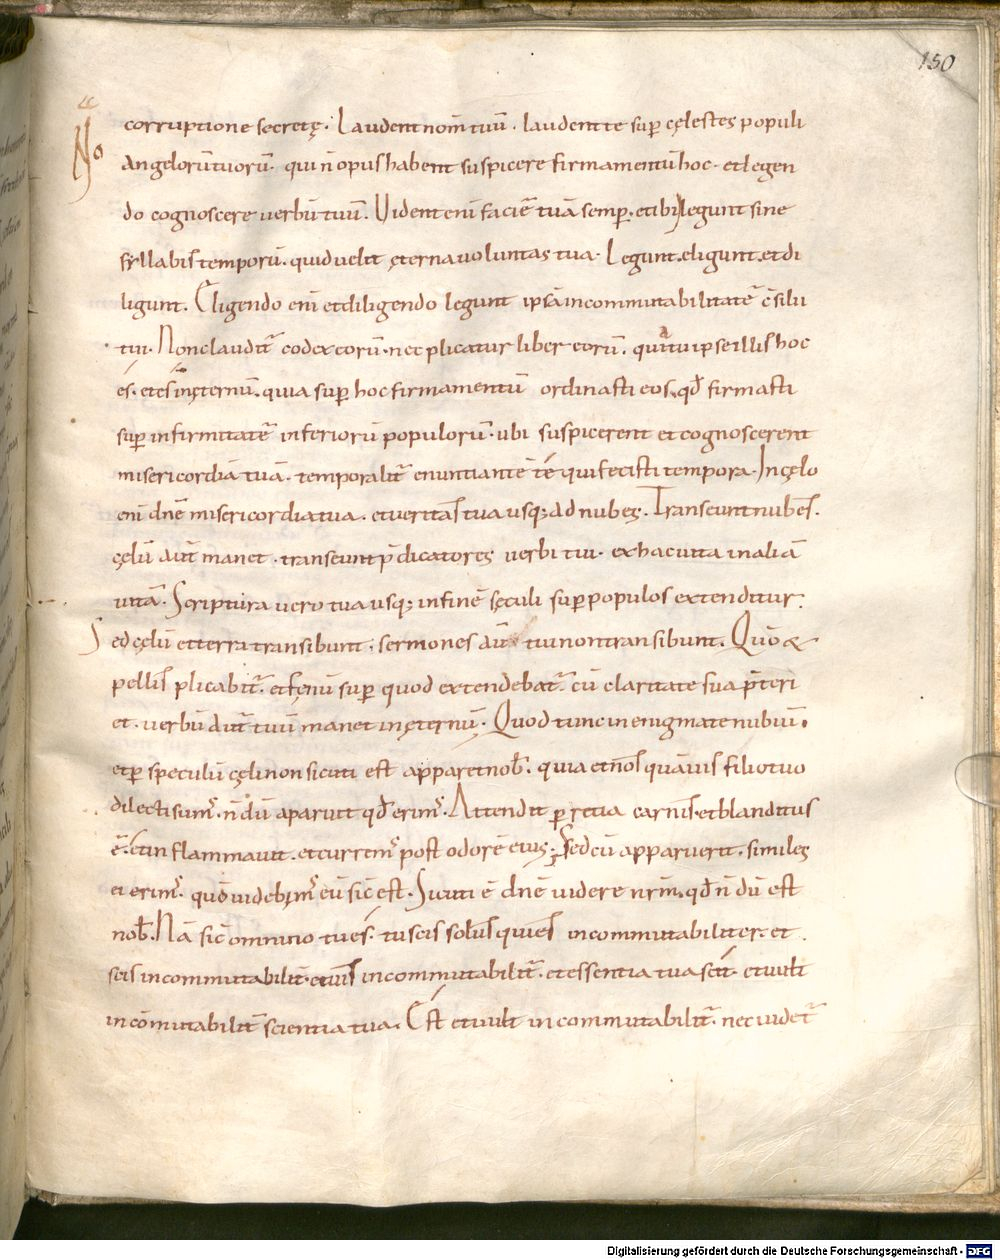 150
No
corruptione secretę. Laudent nom̄ tuū. laudent te sup̄ cęlestes populi
angelorū tuorū. qui n̄ opus habent suspicere firmamentū hoc. et legen
do cognoscere uerbū tuū. Uident eni faciē tuā semp̄. et ibi legunt sine
syllabis temporū. quid uelit ęterna uoluntas tua. Legunt. eligunt. et di
ligunt. Eligendo eni et diligendo legunt ipsā incommutabilitatē c̄silii
tui. Non claudit̄ codex eorū. nec plicatur liber eorū. quia tu ipse illis hoc
es. et es in ęternū. quia sup̄ hoc firmamentū ordinasti eos. qđ firmasti
sup̄ infirmitatē inferiorū populorū. ubi suspicerent et cognoscerent
misericordiā tuā. temporalit̄ enuntiantē te qui fecisti tempora. In cęlo
eni dn̄e misericordia tua. et ueritas tua usq; ad nubes. Transeunt nubes.
cęlū aut̄ manet. transeunt p̄dicatores uerbi tui. ex hac uita in aliā
uitā. Scriptura uero tua usq; in finē sęculi sup̄ populos extenditur.
Sed cęlū et terra transibunt. sermones aut̄ tui non transibunt. Quō &
pellis plicabit̄. et fęnū sup̄ quod extendebat̄ cū claritate sua p̄teri
et. uerbū aut̄ tuū manet in ęternū. Quod tunc in enigmate nubiū.
et p̄ speculū cęli non sicuti est apparet nob̄. quia et nos quāuis filio tuo
dilecti sum̄. n̄ dū aparuit qđ erim̄. Attendit p̄ retia carnis. et blanditus
ē. et inflammauit. et currem̄ post odorē eius; Sed cū apparuerit. similes
ei erim̄. quō uidebim̄ eū sic est. Sicuti ē dn̄e uidere nr̄m. qđ n̄ dū est
nob̄. Nā sic omnino tu es. tu scis solus qui es incommutabiliter. et
scis incommutabilit̄. et uis incommutabilit̄. et essentia tua scit. et uult
incōmutabilit̄ scientia tua. Est et uult incommutabilit̄. nec uidet̄
Digitalisierung gefördert durch die Deutsche Forschungsgemeinschaft - DFG